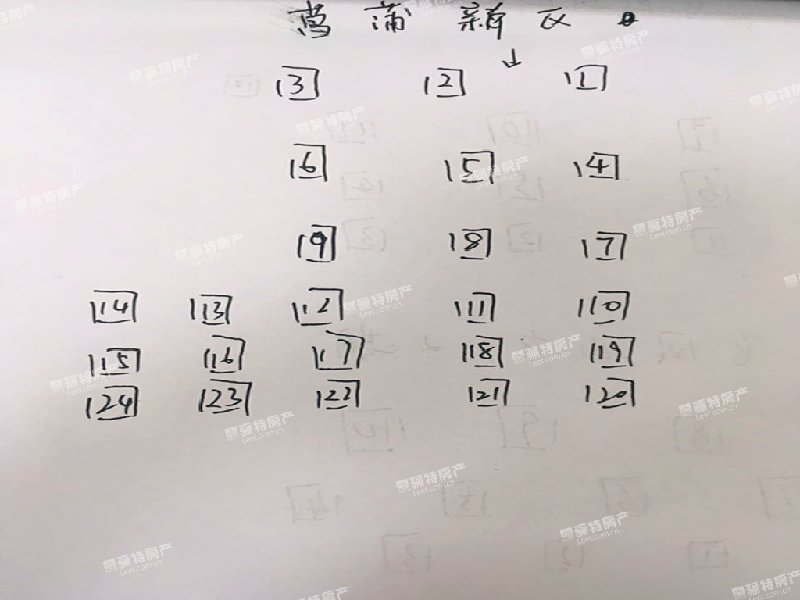 菖蒲新区
↓
3 2 1
6 5 4
9 8 7
14 13 12 11 10
15 16 17 18 19
24 23 22 21 20